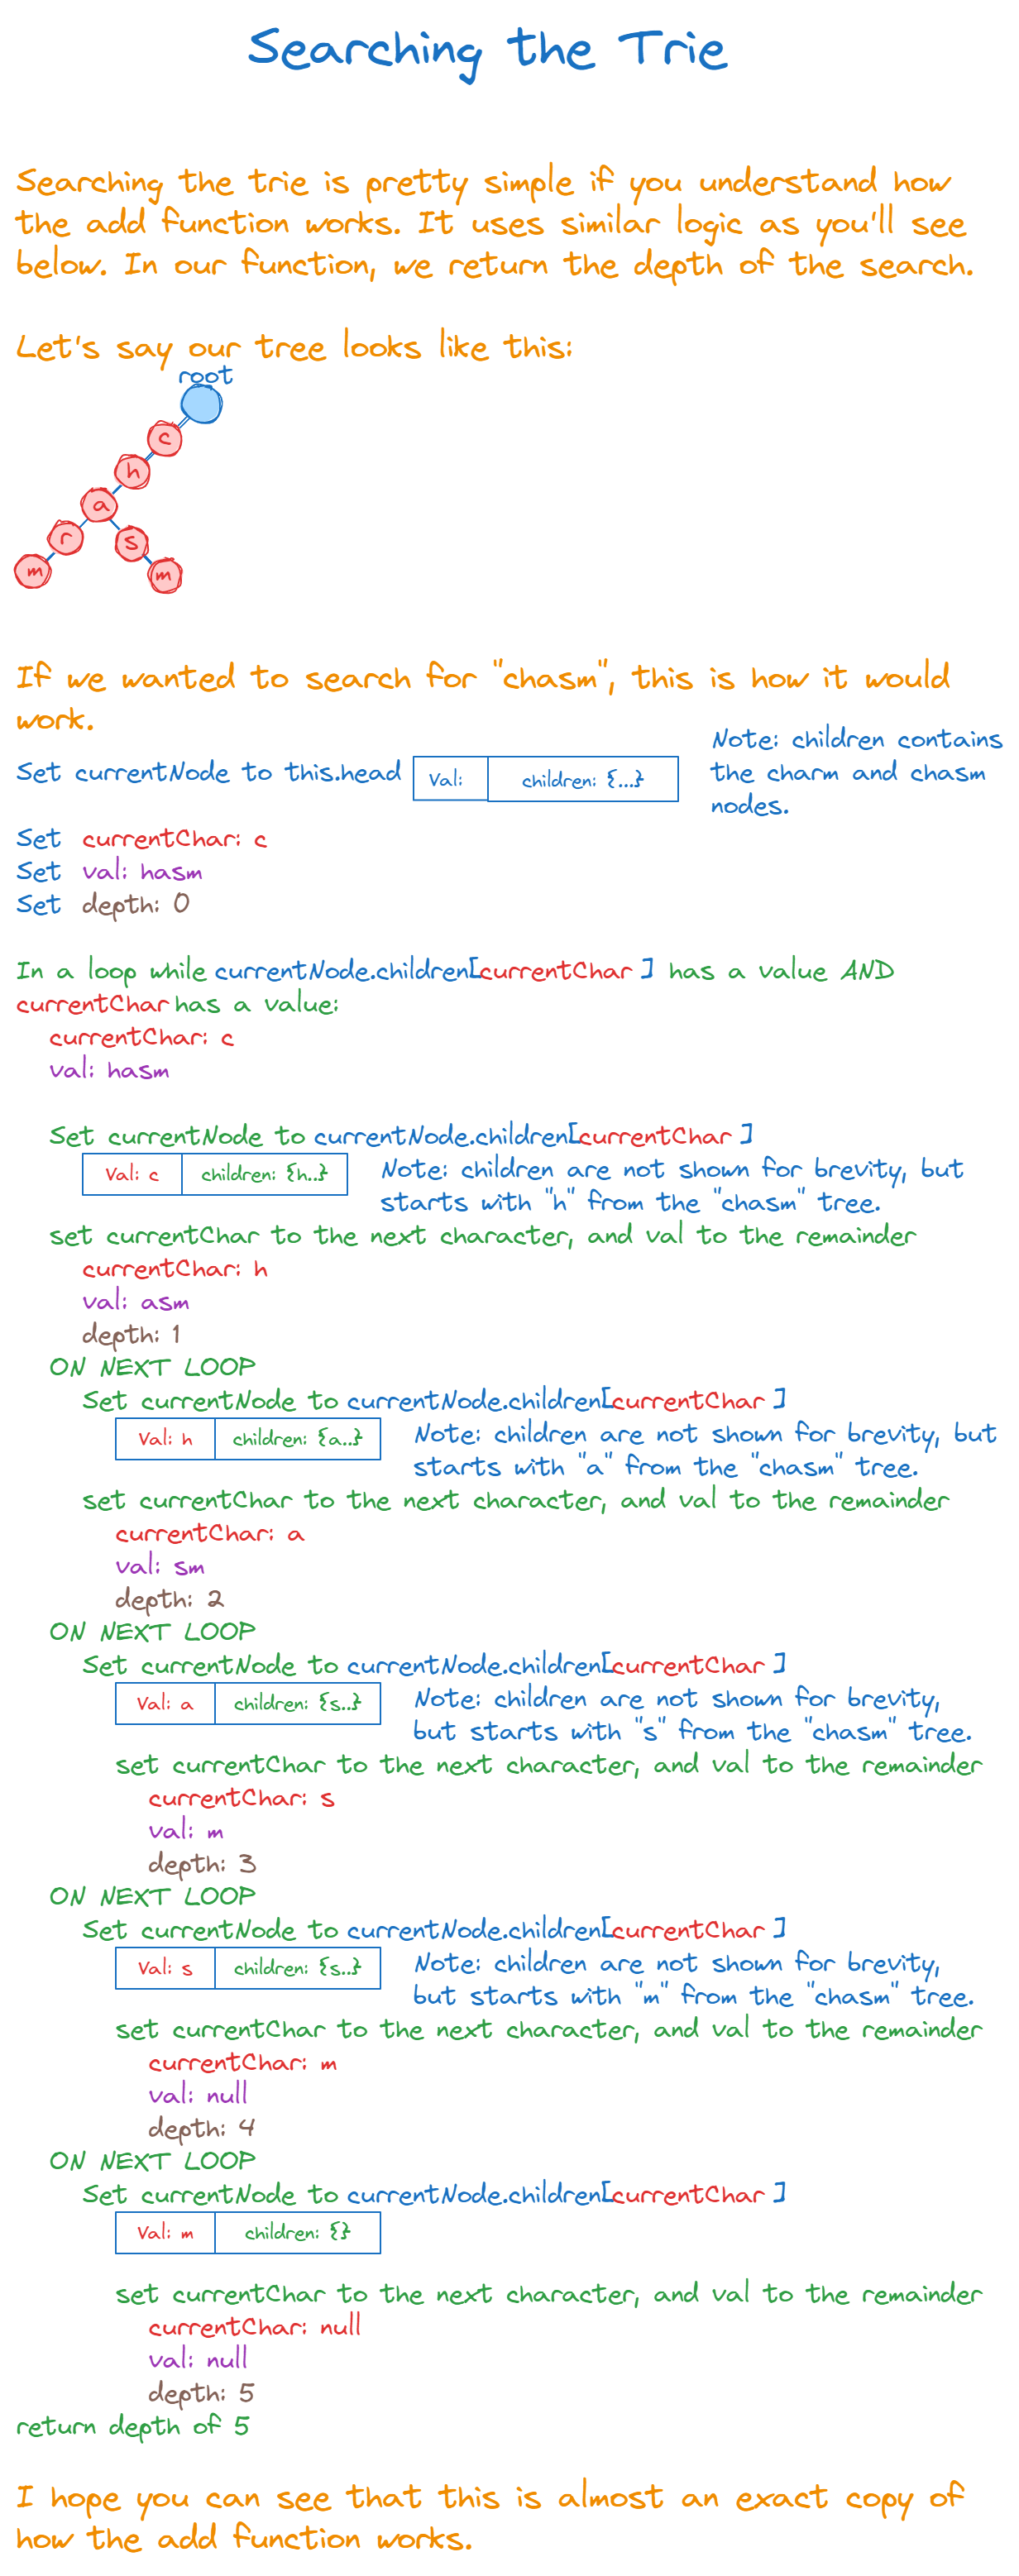 Searching the Trie
Searching the trie is pretty simple if you understand how
the add function works. It uses similar logic as you'll see
below. In our function, we return the depth of the search.
Let's say our tree looks like this:
root
c
h
a
r
s
m
m
If we wanted to search for "chasm", this is how it would
work.
Set currentNode to this.head
Val:
children: {...}
Note: children contains
the charm and chasm
nodes.
Set currentChar: c
Set val: hasm
Set depth: 0
In a loop while currentNode.children[currentChar ] has a value AND
currentChar has a value:
currentChar: c
val: hasm
Set currentNode to currentNode.children[currentChar ]
Val: c
children: {h..}
Note: children are not shown for brevity, but
starts with "h" from the "chasm" tree.
set currentChar to the next character, and val to the remainder
currentChar: h
val: asm
depth: 1
ON NEXT LOOP
Set currentNode to currentNode.children[currentChar ]
Val: h
children: {a..}
Note: children are not shown for brevity, but
starts with "a" from the "chasm" tree.
set currentChar to the next character, and val to the remainder
currentChar: a
val: sm
depth: 2
ON NEXT LOOP
Set currentNode to currentNode.children[currentChar ]
Val: a
children: {s..}
Note: children are not shown for brevity,
but starts with "s" from the "chasm" tree.
set currentChar to the next character, and val to the remainder
currentChar: s
val: m
depth: 3
ON NEXT LOOP
Set currentNode to currentNode.children[currentChar ]
Val: s
children: {s..}
Note: children are not shown for brevity,
but starts with "m" from the "chasm" tree.
set currentChar to the next character, and val to the remainder
currentChar: m
val: null
depth: 4
ON NEXT LOOP
Set currentNode to currentNode.children[currentChar ]
Val: m
children: {}
set currentChar to the next character, and val to the remainder
currentChar: null
val: null
depth: 5
return depth of 5
I hope you can see that this is almost an exact copy of
how the add function works.